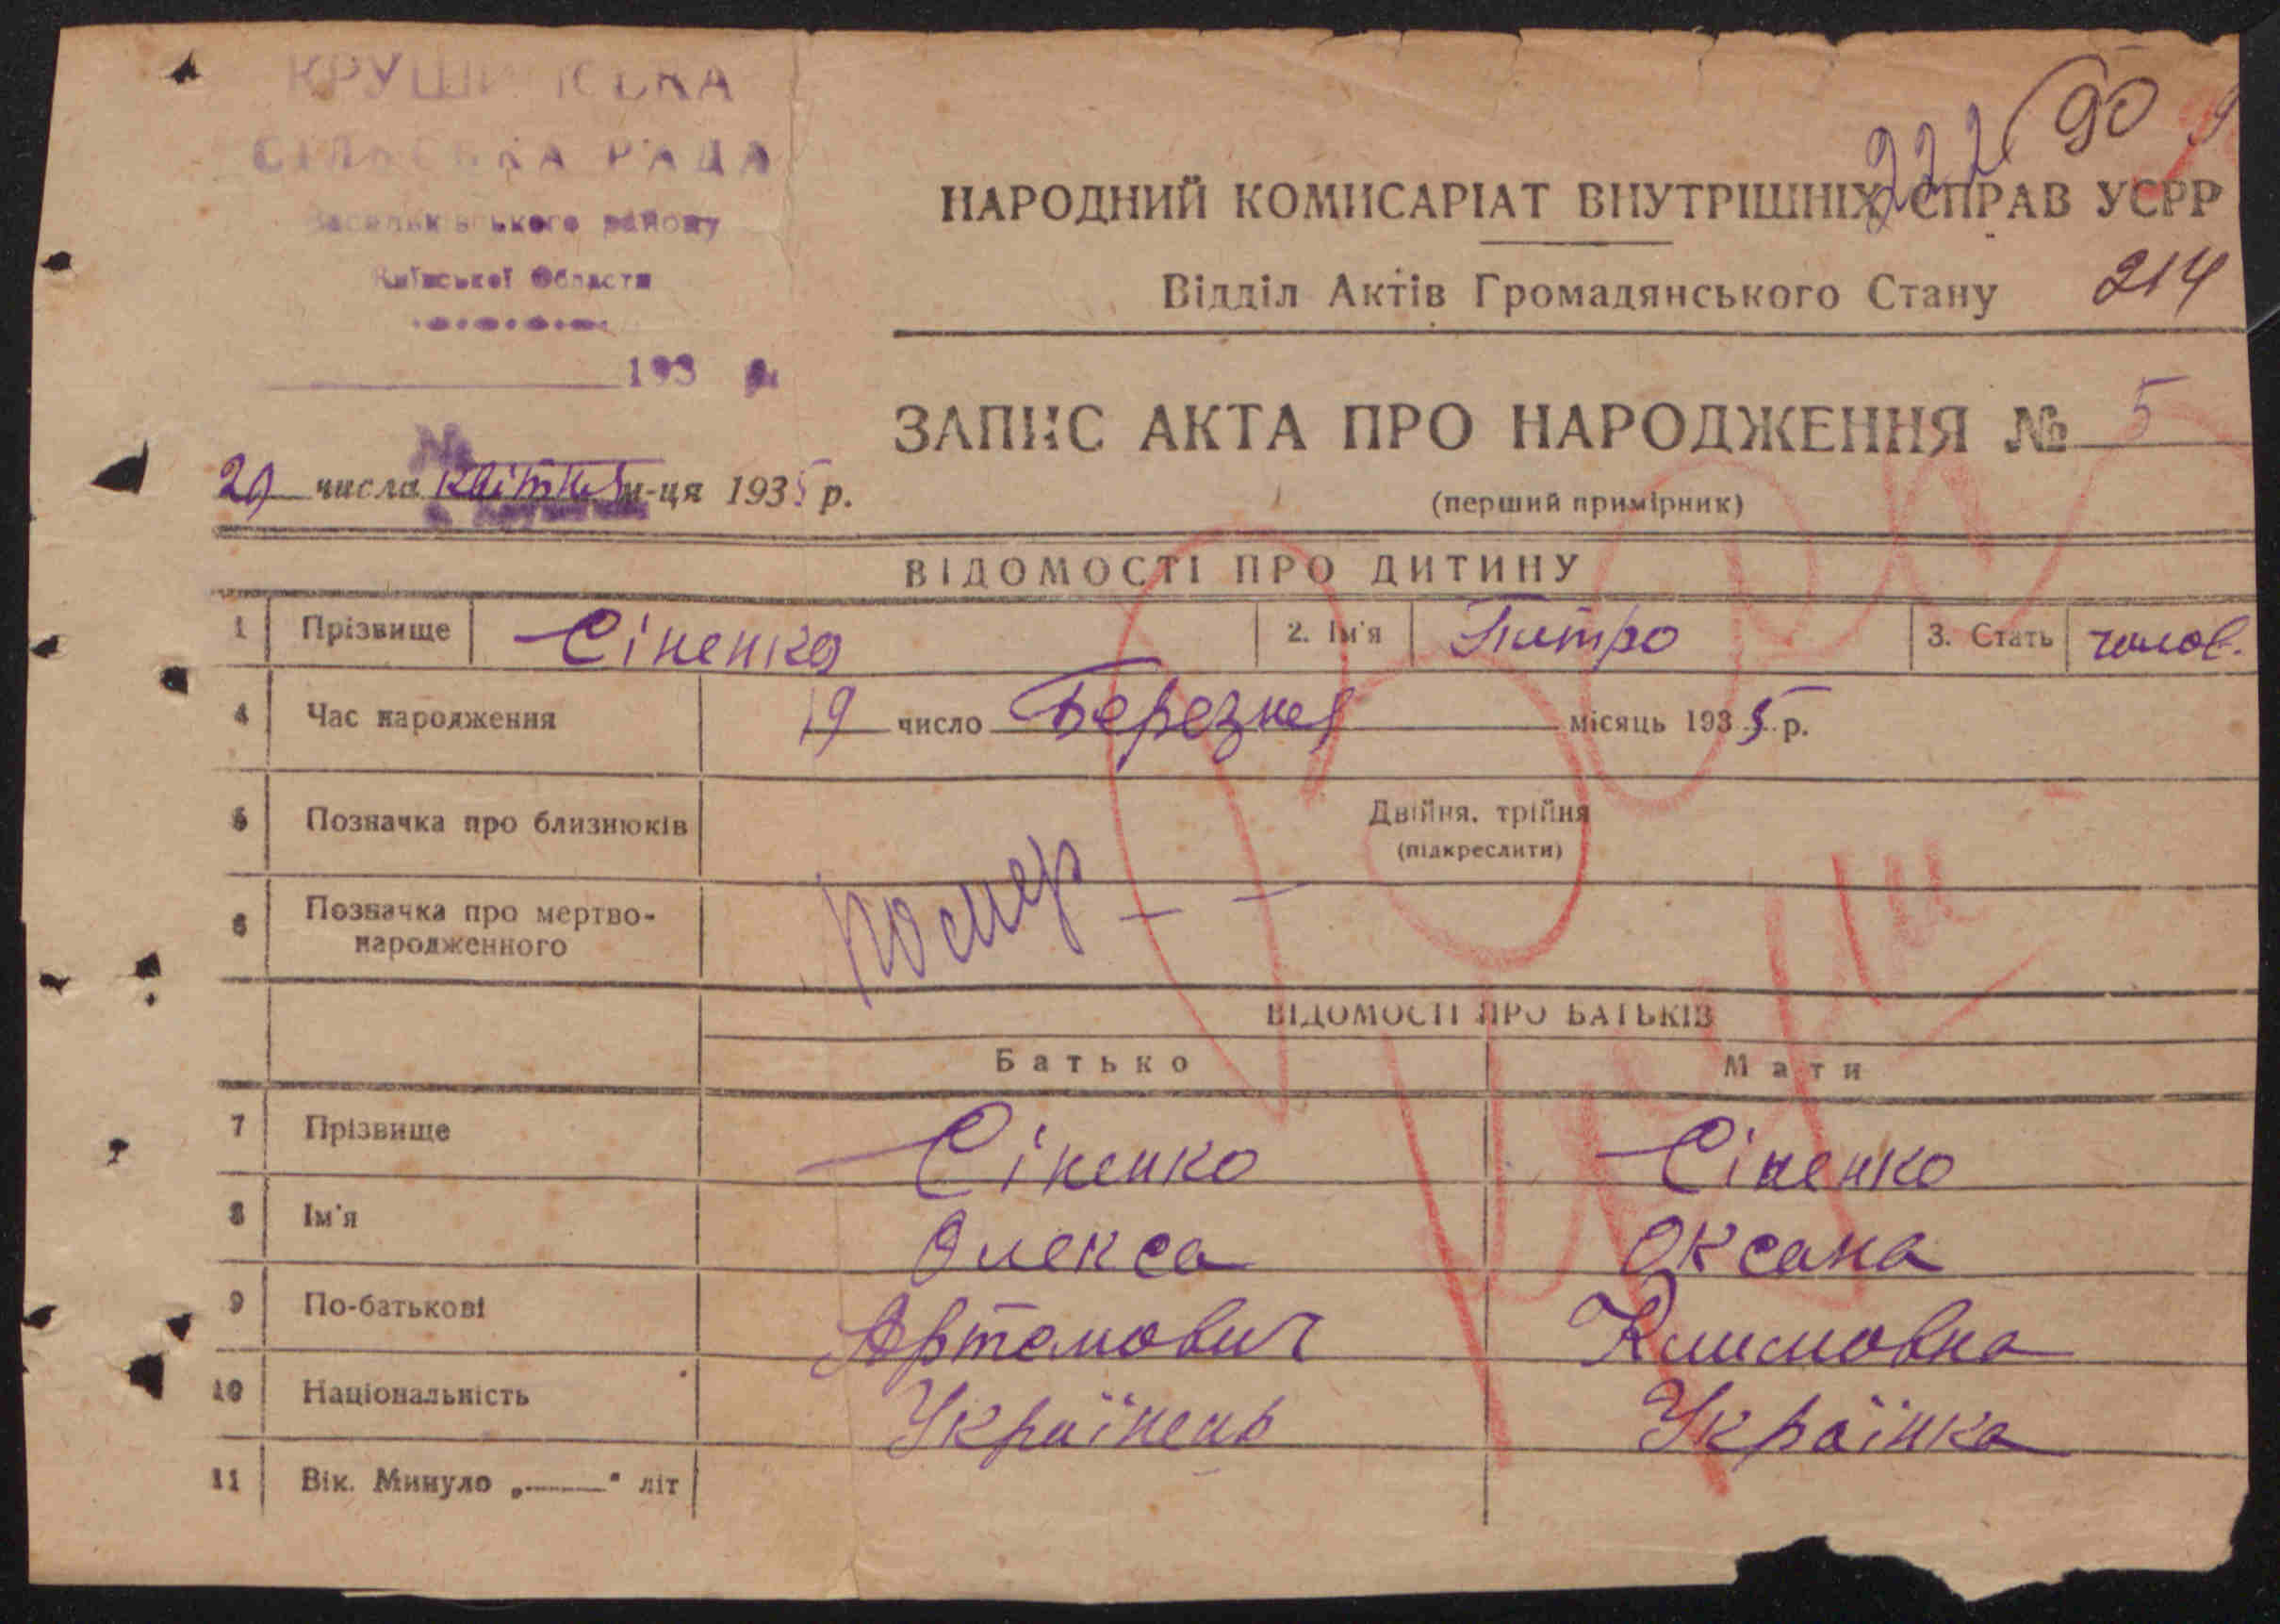 СІЛЬСЬКА РАДА
Васильківського району
Київської Области
193
222 90
НАРОДНИЙ КОМІСАРІАТ ВНУТРІШНІХ СПРАВ УСРР
Відділ Актів Громадянського Стану 214
ЗАПИС АКТА ПРО НАРОДЖЕННЯ № 5
(перший примірник)
29 числа квітня м-ця 1935 р.
ВІДОМОСТІ ПРО ДИТИНУ
1 Прізвище Сіненко 2. Ім'я Питро 3. Стать чолов.
4 Час народження 19 число Березня місяць 1935 р.
5 Позначка про близнюків Двійня, трійня
(підкреслити)
6 Позначка про мертво-
народженного
помер
ВІДОМОСТІ ПРО БАТЬКІВ
Батько Мати
7 Прізвище Сіненко Сіненко
8 Ім'я Олекса Оксана
9 По-батькові Артемович Климовна
10 Національність Українець Українка
11 Вік. Минуло „——" літ